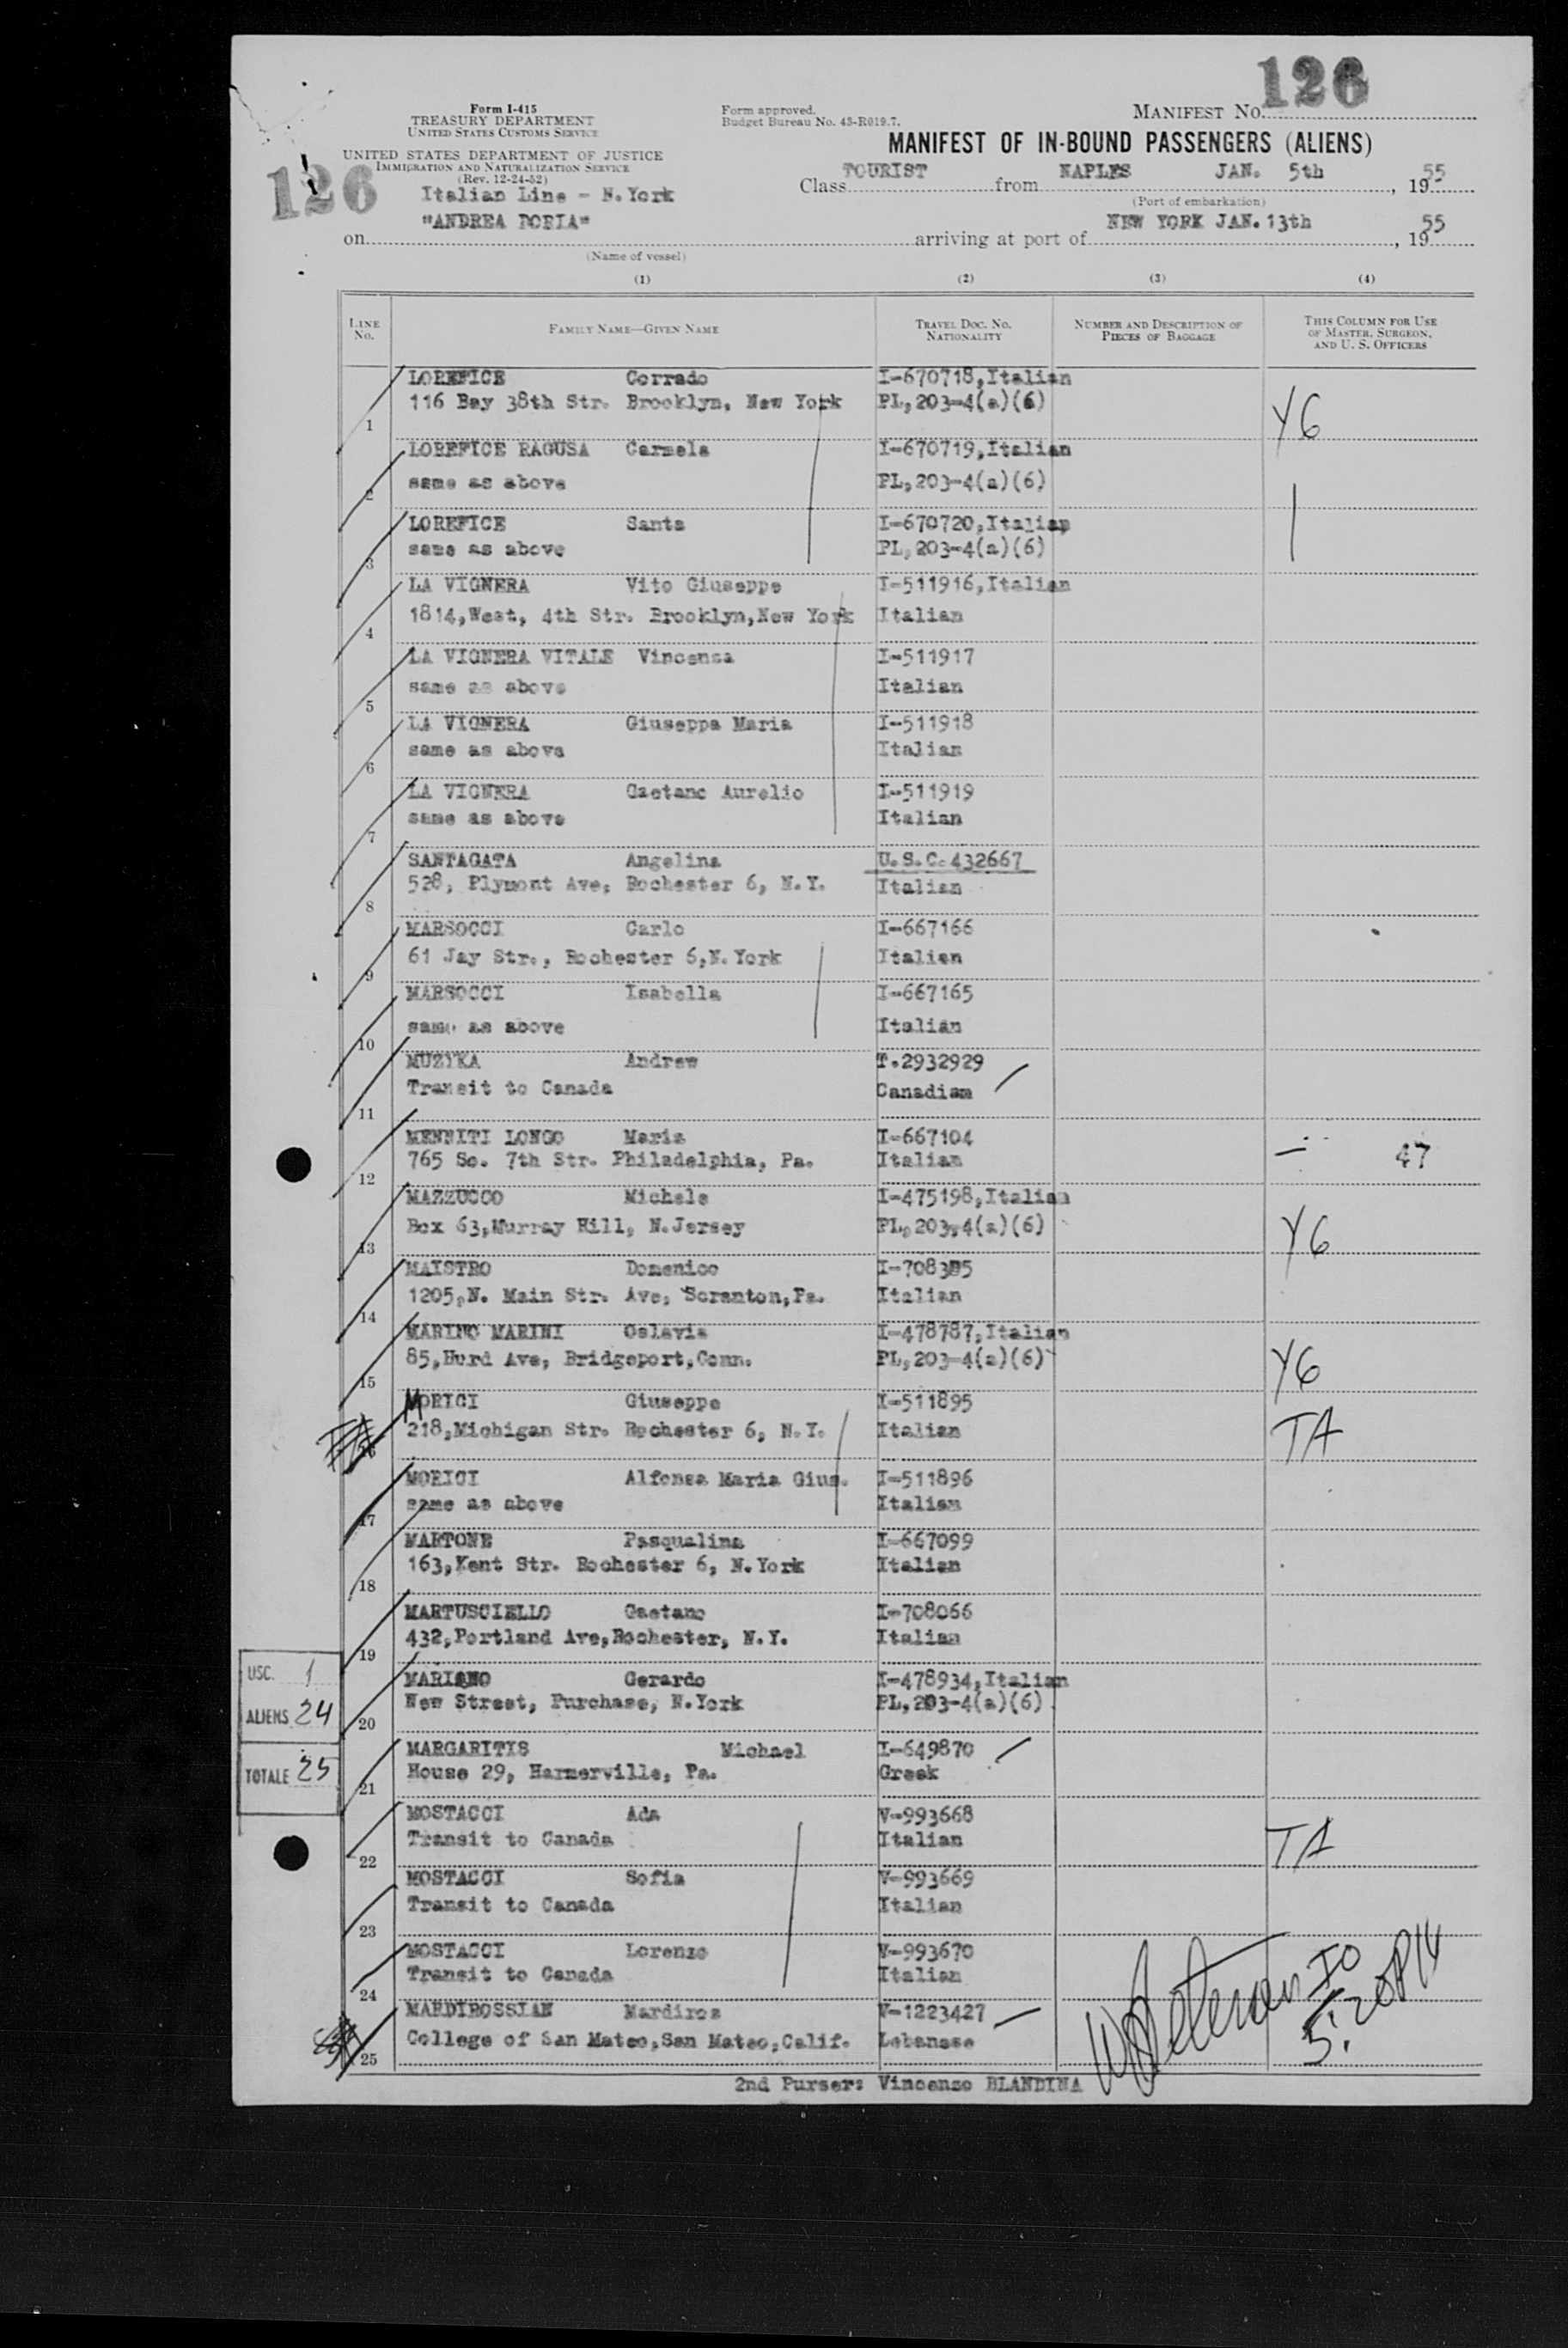 126
Form I-415
TREASURY DEPARTMENT
UNITED STATES CUSTOMS SERVICE
Form approved.
Budget Bureau No. 43-R019.7.
MANIFEST No.
MANIFEST OF IN-BOUND PASSENGERS (ALIENS)
UNITED STATES DEPARTMENT OF JUSTICE
IMMIGRATION AND NATURALIZATION SERVICE
(Rev. 12-24-52)
126
Class TOURIST from NAPLES JAN. 5th, 1955
(Port of embarkation)
Italian Line - N.York
on "ANDREA DORIA" arriving at port of NEW YORK JAN.13th, 1955
(Name of vessel)
(1) (2) (3) (4)
LINE No.
FAMILY NAME—GIVEN NAME
TRAVEL DOC. NO. NATIONALITY
NUMBER AND DESCRIPTION OF PIECES OF BAGGAGE
THIS COLUMN FOR USE OF MASTER, SURGEON, AND U. S. OFFICERS
LOREFICE Corrado I-670718,Italian
1 116 Bay 38th Str. Brooklyn, New York PL,203-4(a)(6) Y6
LOREFICE RAGUSA Carmela I-670719,Italian
2 same as above PL,203-4(a)(6)
LOREFICE Santa I-670720,Italian
3 same as above PL,203-4(a)(6)
LA VIGNERA Vito Giuseppe I-511916,Italian
4 1814,West, 4th Str. Brooklyn,New York Italian
LA VIGNERA VITALE Vincenza I-511917
5 same as above Italian
LA VIGNERA Giuseppa Maria I-511918
6 same as above Italian
LA VIGNERA Gaetano Aurelio I-511919
7 same as above Italian
SANTAGATA Angelina U.S.C.432667
8 528, Plymont Ave, Rochester 6, N.Y. Italian
MARSOCCI Carlo I-667166
9 61 Jay Str., Rochester 6,N.York Italian
MARSOCCI Isabella I-667165
10 same as above Italian
MUZYKA Andrew T.2932929
11 Transit to Canada Canadian
MENNITI LONGO Maria I-667104
12 765 So. 7th Str. Philadelphia, Pa. Italian — 47
MAZZUCCO Michele I-475198,Italian
13 Box 63,Murray Hill, N.Jersey PL,203,4(a)(6) Y6
MAISTRO Domenico
14 1205,N. Main Str. Ave, Scranton,Pa. Italian
MARINO MARINI Oslavia I-478787,Italian
15 85,Hurd Ave, Bridgeport,Conn. PL,203-4(a)(6) Y6
MORICI Giuseppe I-511895
16 218,Michigan Str. Rochester 6, N.Y. Italian TA
MORICI Alfonsa Maria Gius. I-511896
17 same as above Italian
MARTONE Pasqualina I-667099
18 163,Kent Str. Rochester 6, N.York Italian
MARTUSCIELLO Gaetano I-708066
19 432,Portland Ave,Rochester, N.Y. Italian
MARIANO Gerardo I-478934,Italian
20 New Street, Purchase, N.York PL,203-4(a)(6)
USC. 1
ALIENS 24
TOTALE 25
MARGARITIS Michael I-649870
21 House 29, Harmerville, Pa. Greek
MOSTACCI Ada V-993668
22 Transit to Canada Italian TA
MOSTACCI Sofia V-993669
23 Transit to Canada Italian
MOSTACCI Lorenzo V-993670
24 Transit to Canada Italian
MARDIROSSIAN Mardiros V-1223427
25 College of San Mateo,San Mateo,Calif. Lebanese
2nd Purser: Vincenzo BLANDINA